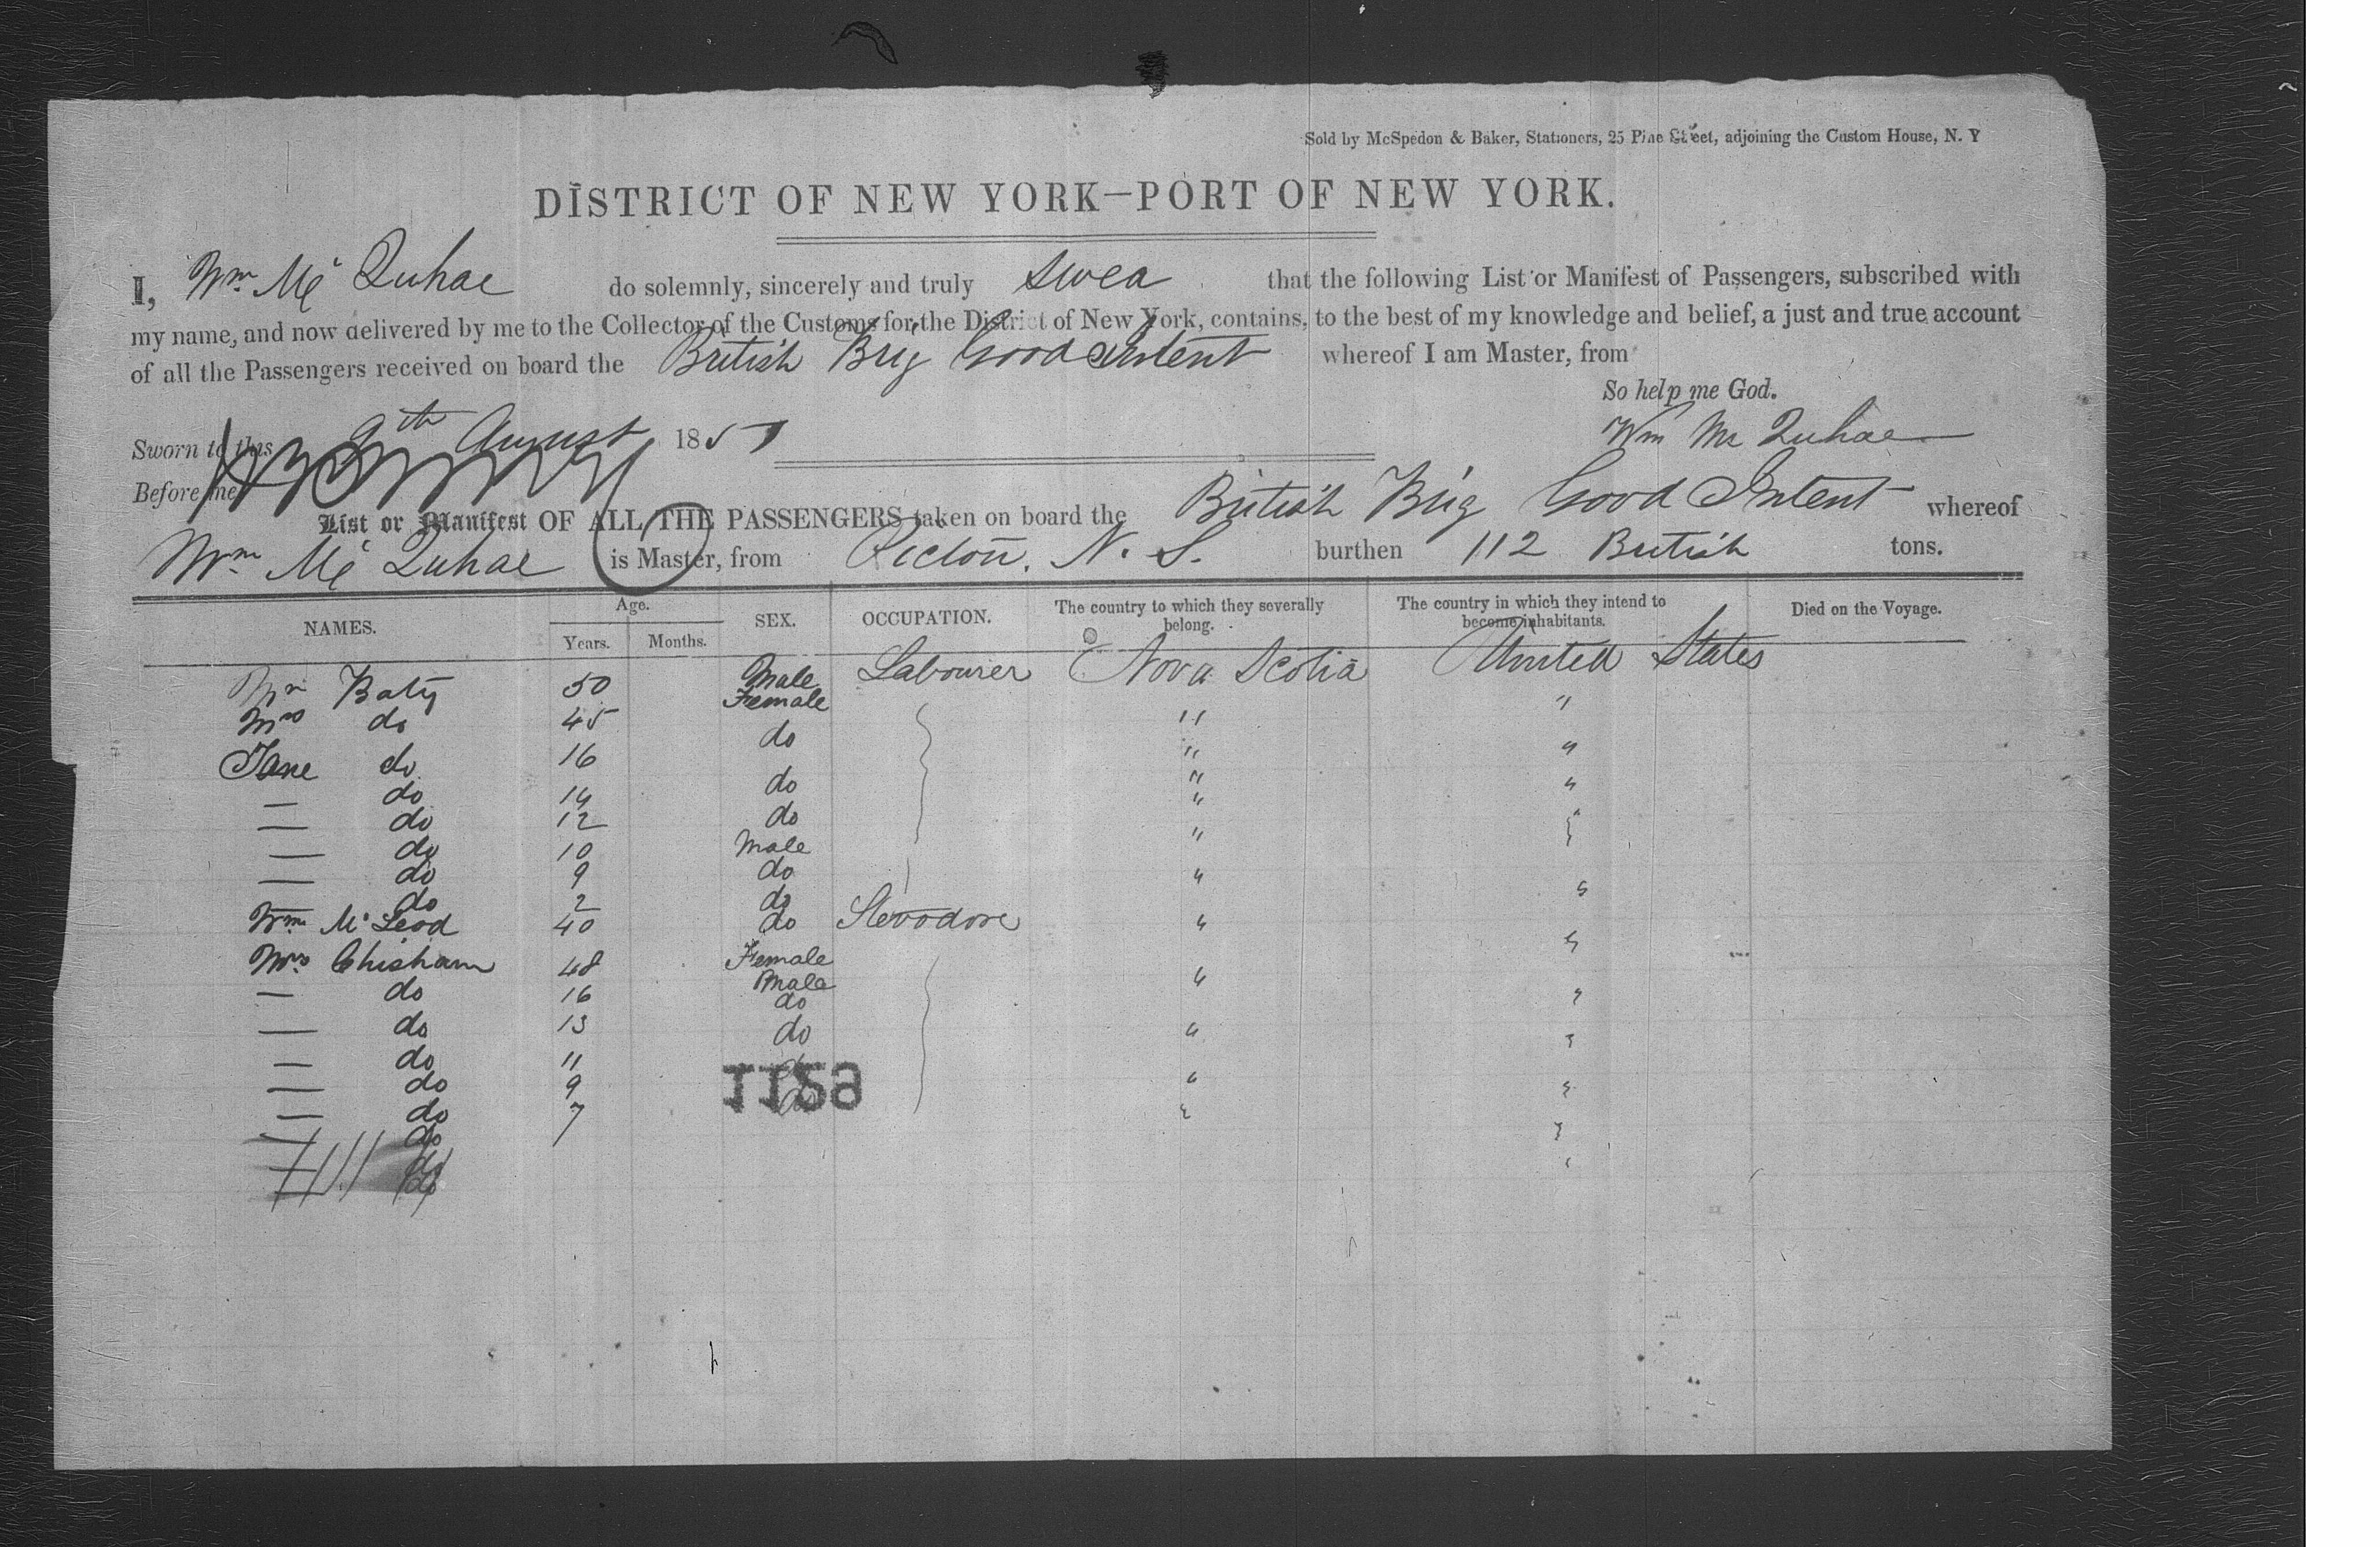 Sold by McSpedon & Baker, Stationers, 25 Pine Street, adjoining the Custom House, N. Y
DISTRICT OF NEW YORK—PORT OF NEW YORK.
I, Wm. Mc Quhae do solemnly, sincerely and truly swea that the following List or Manifest of Passengers, subscribed with
my name, and now delivered by me to the Collector of the Customs for the District of New York, contains, to the best of my knowledge and belief, a just and true account
of all the Passengers received on board the British Brig Good Intent whereof I am Master, from
So help me God.
Sworn to this 9th August 1851
Wm Mc Quhae
Before me
List or Manifest OF ALL THE PASSENGERS taken on board the British Brig Good Intent whereof
Wm. Mc Quhae is Master, from Pictou. N. S. burthen 112 British tons.
NAMES. Age. Years. Months. SEX. OCCUPATION. The country to which they severally belong. The country in which they intend to become inhabitants. Died on the Voyage.
Baty 50 Male Labourer Nova Scotia United States
Mrs do 45 Female " "
Jane do 16 do " "
— do 14 do " "
— do 12 do "
— do 10 Male "
— do 9 do "
— do 2 do
Wm. Mc Leod 40 do Stevodore "
Mrs Chisham 48 Female
— do 16 Male "
— do 13 do
— do 11 do "
— do 9 "
— do 7
— do
do
do
11259